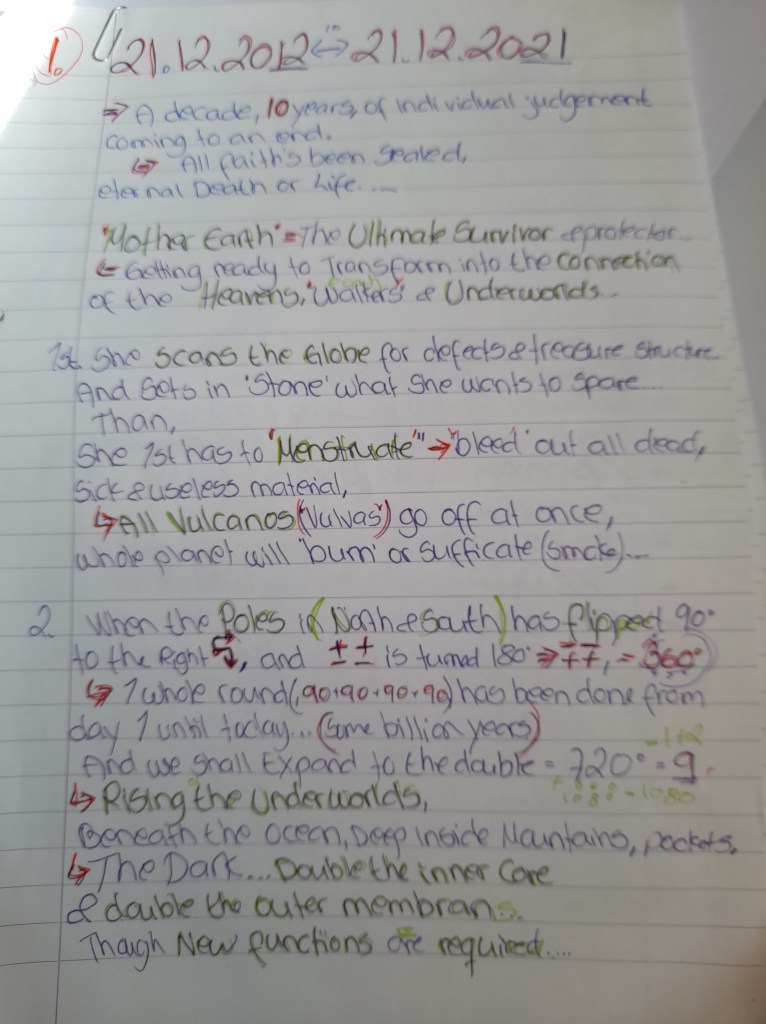 1. 21.12.2012 ↔ 21.12.2021
⇒ A decade, 10 years, of individual judgement
coming to an end.
↳ All faith's been sealed,
eternal Death or Life....
"Mother Earth" = The Ultimate Survivor & protector..
← Getting ready to Transform into the connection
of the Heavens, & Underworlds..
1st She scans the Globe for defects & treasure structure
And Sets in 'Stone' what she wants to spare...
Than,
She 1st has to "Menstruate" → 'bleed' out all dead,
Sick & useless material,
↳ All Vulcanos (Vulvas) go off at once,
whole planet will 'burn' or sufficate (smoke)...
2 When the Poles (North & South) has flipped 90°
to the Right, and ±± is turned 180° ⇒ ∓∓, = 360°
↳ 1 whole round (90+90+90+90) has been done from
day 1 until today... (some billion years)
And we shall Expand to the double = 720° = 9.
= 1080
↳ Rising the Underworlds,
Beneath the ocean, Deep inside Mountains, pockets,
↳ The Dark... Double the inner Core
& double the outer membrans.
Though New functions are required....